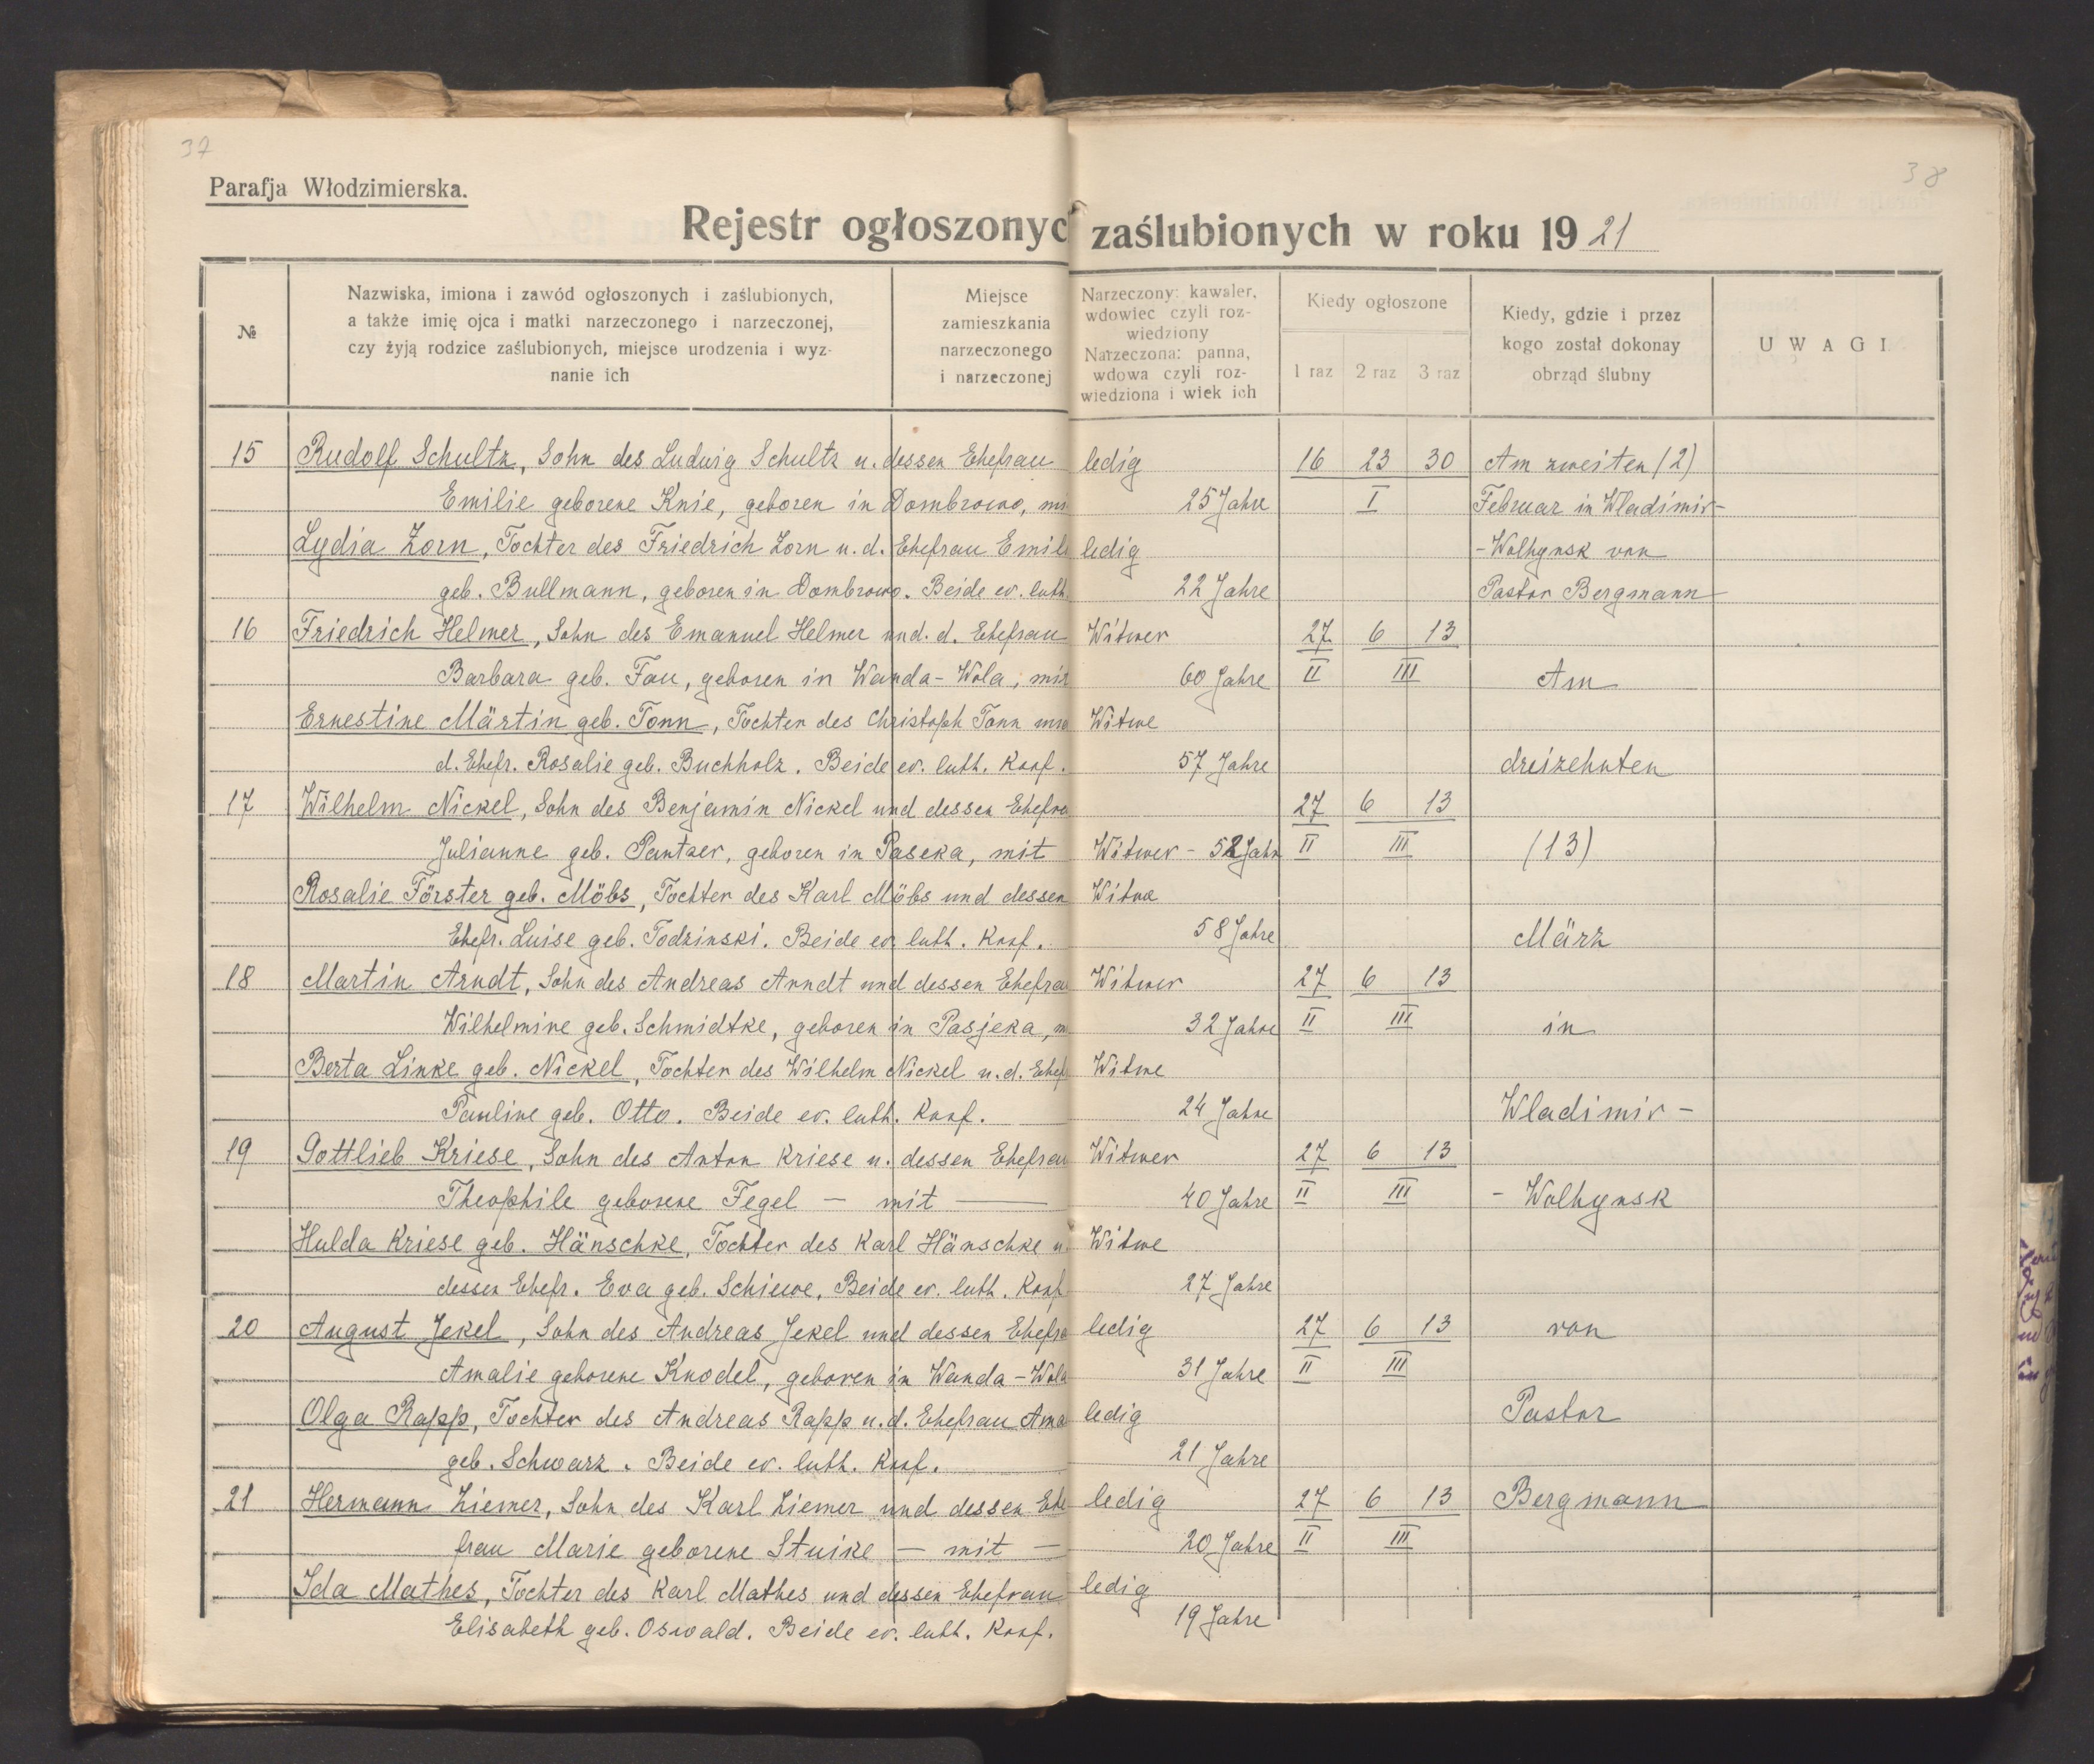 37
38
Parafja Włodzimierska.
Rejestr ogłoszonyc zaślubionych w roku 1921
№
Nazwiska, imiona i zawód ogłoszonych i zaślubionych,
a także imię ojca i matki narzeczonego i narzeczonej,
czy żyją rodzice zaślubionych, miejsce urodzenia i wyz-
nanie ich
Miejsce
zamieszkania
narzeczonego
i narzeczonej
Narzeczony: kawaler,
wdowiec czyli roz-
wiedziony
Narzeczona: panna,
wdowa czyli roz-
wiedziona i wiek ich
Kiedy ogłoszone
1 raz 2 raz 3 raz
Kiedy, gdzie i przez
kogo został dokonay
obrząd ślubny
UWAGI
15 Rudolf Schultz, Sohn des Ludwig Schultz u. dessen Ehefrau ledig 16 23 30 Am zweiten (2)
Emilie geborene Knie, geboren in Dombrowo, mi 25 Jahre I Februar in Wladimir-
Lydia Zorn, Tochter des Friedrich Zorn u. d. Ehefrau Emili ledig -Wolhynsk von
geb. Bullmann, geboren in Dombrowo. Beide ev. luth. 22 Jahre Pastor Bergmann
16 Friedrich Helmer, Sohn des Emanuel Helmer und. d. Ehefrau Witwer 27 6 13
Barbara geb. Fau, geboren in Wanda-Wola, mit 60 Jahre II III Am
Ernestine Märtin geb. Tonn, Tochter des Christoph Tonn und Witwe
d. Ehefr. Rosalie geb. Buchholz. Beide ev. luth. Konf. 57 Jahre dreizehnten
17 Wilhelm Nickel, Sohn des Benjamin Nickel und dessen Ehefra 27 6 13
Julianne geb. Pantzer, geboren in Paseka, mit Witwer - 52 Jahr II III (13)
Rosalie Förster geb. Möbs, Tochter des Karl Möbs und dessen Witwe
Ehefr. Luise geb. Todzinski. Beide ev. luth. Konf. 58 Jahre März
18 Martin Arndt, Sohn des Andreas Arndt und dessen Ehefrau Witwer 27 6 13
Wilhelmine geb. Schmidtke, geboren in Pasjeka, m 32 Jahre II III in
Berta Linke geb. Nickel, Tochter des Wilhelm Nickel u. d. Ehef Witwe
Pauline geb. Otto. Beide ev. luth. Konf. 24 Jahre Wladimir-
19 Gottlieb Kriese, Sohn des Anton Kriese u. dessen Ehefrau Witwer 27 6 13
Theophile geborene Fegel — mit — 40 Jahre II III - Wolhynsk
Hulda Kriese geb. Hänschke, Tochter des Karl Hänschke u Witwe
dessen Ehefr. Eva geb. Schiewe. Beide ev. luth. Konf 27 Jahre
20 August Jekel, Sohn des Andreas Jekel und dessen Ehefra ledig 27 6 13 von
Amalie geborene Knodel, geboren in Wanda-Wola 31 Jahre II III
Olga Rapp, Tochter des Andreas Rapp u. d. Ehefrau Ama ledig Pastor
geb. Schwarz. Beide ev. luth. Konf. 21 Jahre
21 Hermann Ziemer, Sohn des Karl Ziemer und dessen Ehe- ledig 27 6 13 Bergmann
frau Marie geborene Stuike — mit — 20 Jahre II III
Ida Mathes, Tochter des Karl Mathes und dessen Ehefrau ledig
Elisabeth geb. Oswald. Beide ev. luth. Konf. 19 Jahre